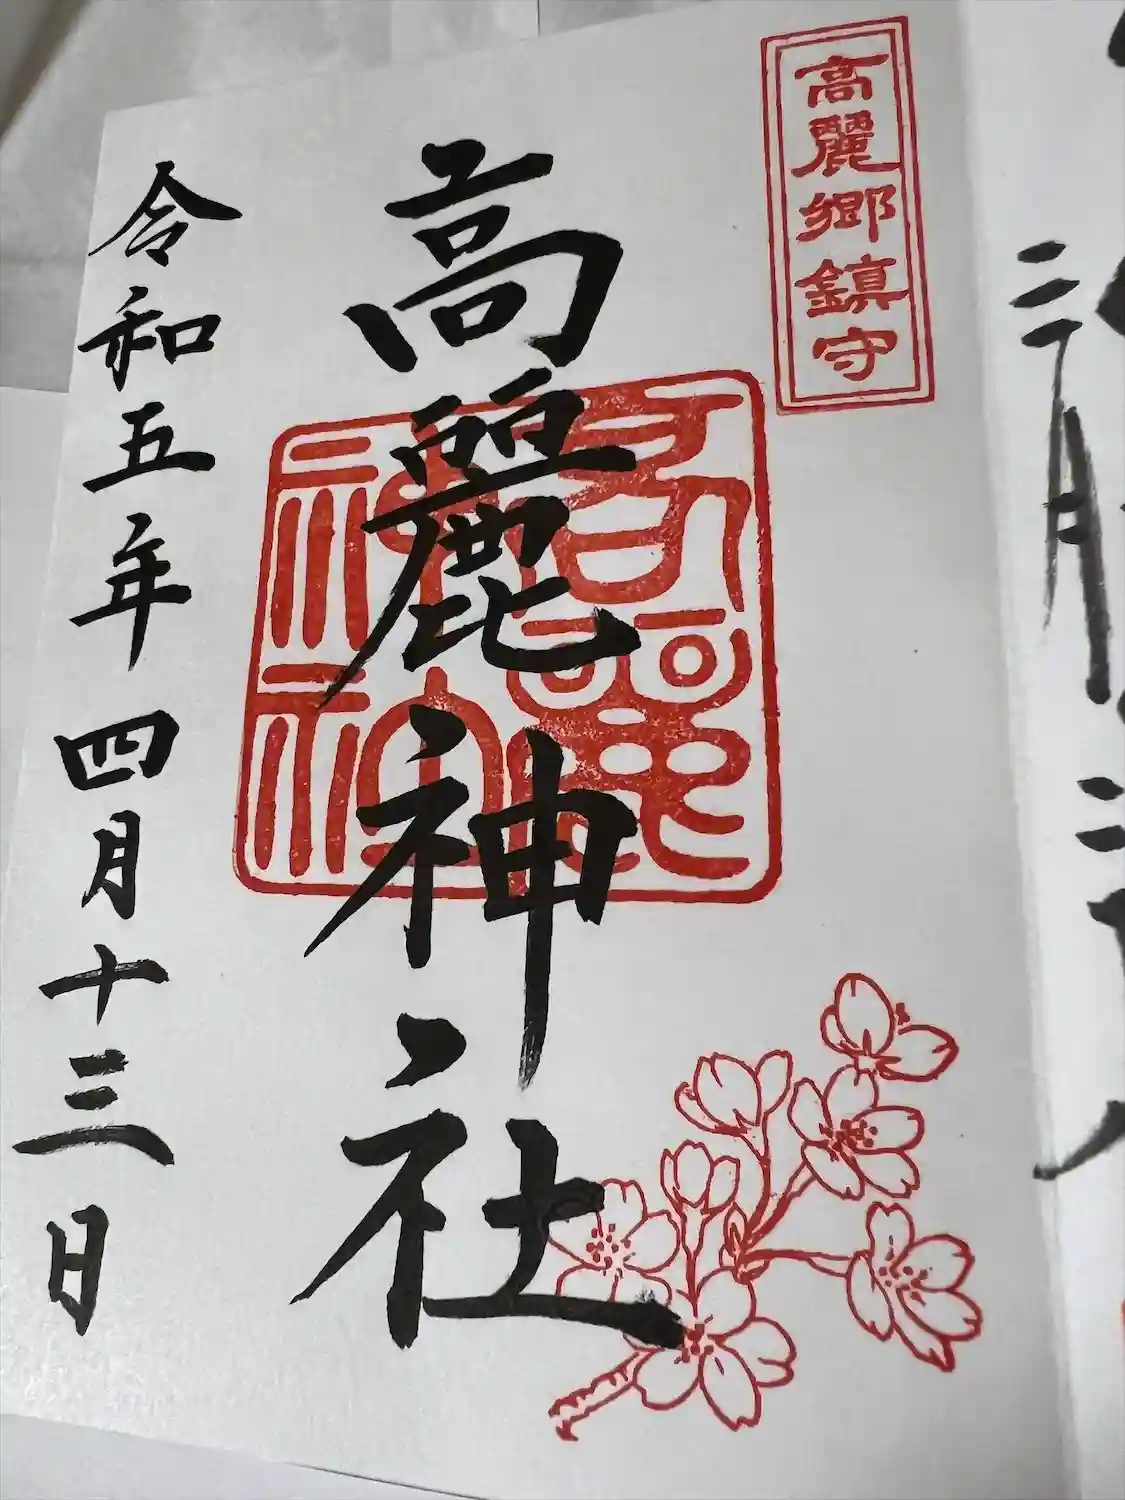 高麗郷鎮守
高麗神社
高麗神社
令和五年四月十三日